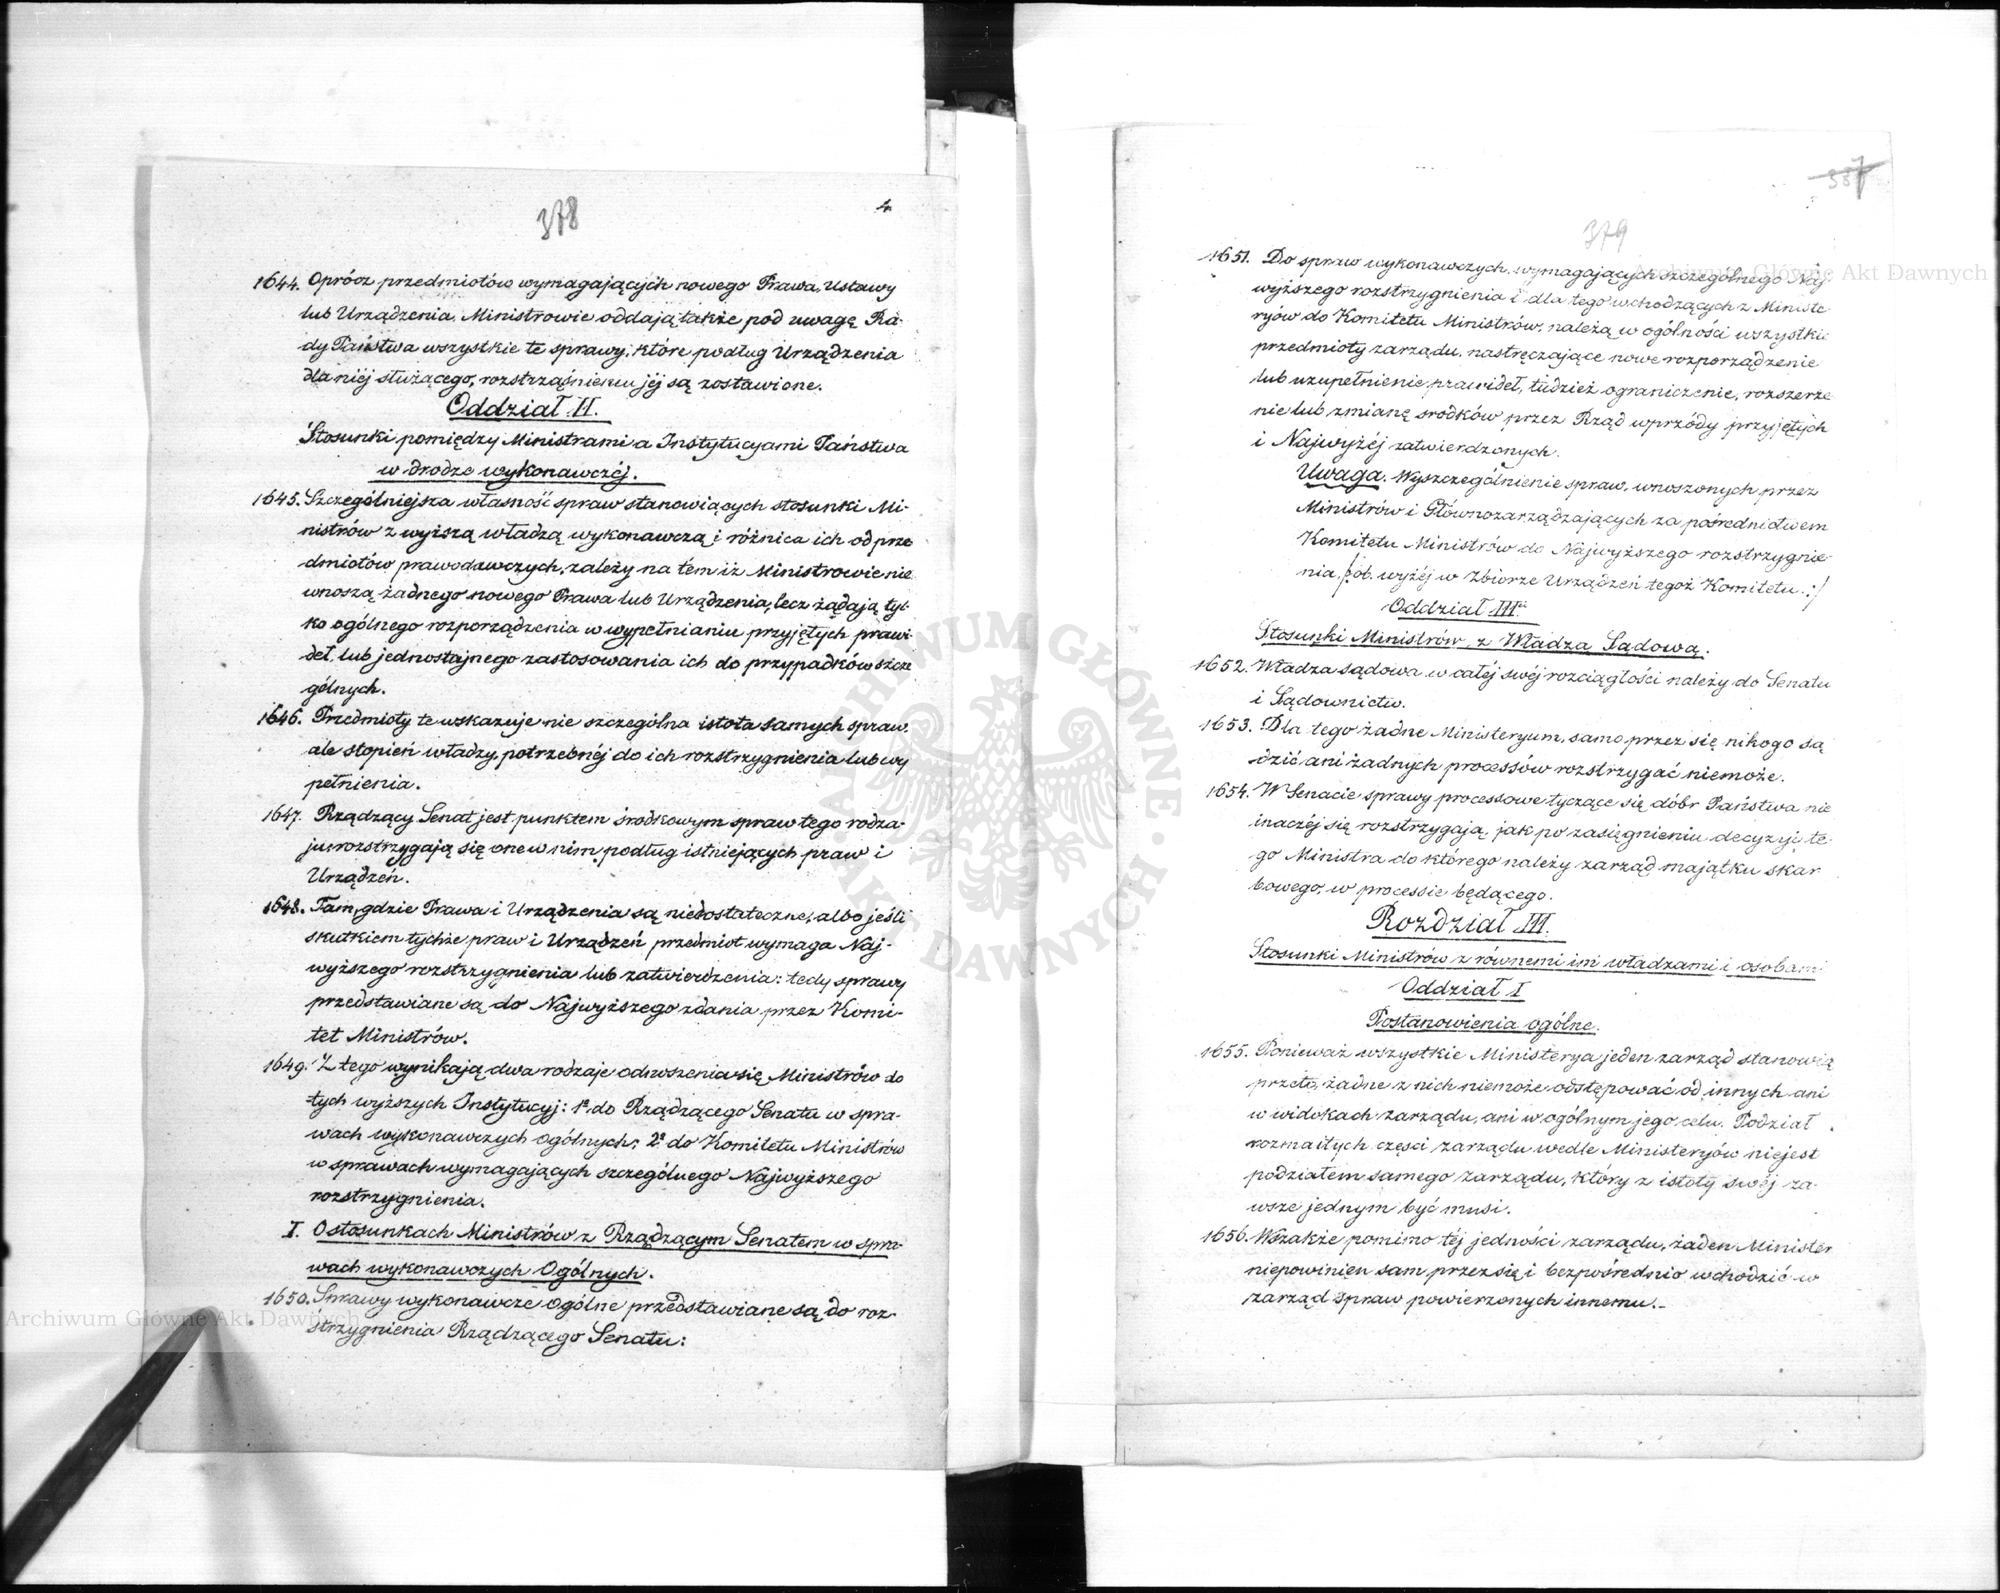 378
4
1644. Oprócz przedmiotów wymagających nowego Prawa, Ustawy
lub Urządzenia, Ministrowie oddają także pod uwagę Ra-
dy Państwa wszystkie te sprawy, które podług Urządzenia
dla niéj służącego, rozstrząśnieniu jéj są zostawione.
Oddział II.
Stosunki pomiędzy Ministrami a Instytucyami Państwa
w drodze wykonawczéj.
1645. Szczególniejsza własność spraw stanowiących stosunki Mi-
nistrów z wyższą władzą wykonawczą i różnica ich od prze
dmiotów prawodawczych, zależy na tém iż Ministrowie nie
wnoszą żadnego nowego Prawa lub Urządzenia, lecz żądają tyl-
ko ogólnego rozporządzenia w wypełnianiu przyjętych prawi-
deł, lub jednostajnego zastosowania ich do przypadków szcze
gólnych.
1646. Przedmioty te wskazuje nie szczególna istota samych spraw,
ale stopień władzy, potrzebnéj do ich rozstrzygnienia lub wy
pełnienia.
1647. Rządzący Senat jest punktem środkowym spraw tego rodza-
ju: rozstrzygają się one w nim podług istniejących praw i
Urządzeń.
1648. Tam, gdzie Prawa i Urządzenia są niedostateczne, albo jeśli
skutkiem tychże praw i Urządzeń przedmiot wymaga Naj-
wyższego rozstrzygnienia lub zatwierdzenia: tedy sprawy
przedstawiane są do Najwyższego zdania przez Komi-
tet Ministrów.
1649. Z tego wynikają dwa rodzaje odnoszenia się Ministrów do
tych wyższych Instytucyj: 1º do Rządzącego Senatu w spra-
wach wykonawczych ogólnych; 2º do Komitetu Ministrów
w sprawach wymagających szczególnego Najwyższego
rozstrzygnienia.
I. O stosunkach Ministrów z Rządzącym Senatem w spra-
wach wykonawczych Ogólnych.
1650. Sprawy wykonawcze ogólne przedstawiane są do roz-
strzygnienia Rządzącego Senatu:
379
1651. Do spraw wykonawczych, wymagających szczególnego Naj-
wyższego rozstrzygnienia i dla tego wchodzących z Ministe-
ryów do Komitetu Ministrów, należą w ogólności wszystkie
przedmioty zarządu, nastręczające nowe rozporządzenie
lub uzupełnienie prawideł, tudzież ograniczenie, rozszerze
nie lub zmianę srodków przez Rząd wprzódy przyjętych
i Najwyżéj zatwierdzonych.
Uwaga. Wyszczególnienie spraw, wnoszonych przez
Ministrów i Głównozarządzających za pośrednictwem
Komitetu Ministrów do Najwyższego rozstrzygnie-
nia /: ob. wyżéj w Zbiorze Urządzeń tegoż Komitetu :/
Oddział III.
Stosunki Ministrów z Władzą Sądową.
1652. Władza sądowa w całéj swéj rozciągłości należy do Senatu
i Sądownictw.
1653. Dla tego żadne Ministeryum, samo przez się nikogo są
dzić ani żadnych processów rozstrzygać niemoże.
1654. W Senacie sprawy processowe tyczące się dóbr Państwa nie
inaczéj się rozstrzygają, jak po zasięgnieniu decyzyi te-
go Ministra do którego należy zarząd majątku skar
bowego, w processie będącego.
Rozdział III.
Stosunki Ministrów z równemi im władzami i osobami
Oddział I
Postanowienia ogólne.
1655. Ponieważ wszystkie Ministerya jeden zarząd stanowią
przeto, żadne z nich niemoże odstępować od innych ani
w widokach zarządu, ani w ogólnym jego celu. Podział
rozmaitych częsci zarządu wedle Ministeryów niejest
podziałem samego zarządu, który z istoty swéj za-
wsze jednym być musi.
1656. Wszakże pomimo téj jedności zarządu, żaden Minister
niepowinien sam przez się i bezpośrednio wchodzić w
zarząd spraw powierzonych innemu.
ARCHIWUM GŁÓWNE AKT DAWNYCH
Archiwum Główne Akt Dawnych
Archiwum Główne Akt Dawnych